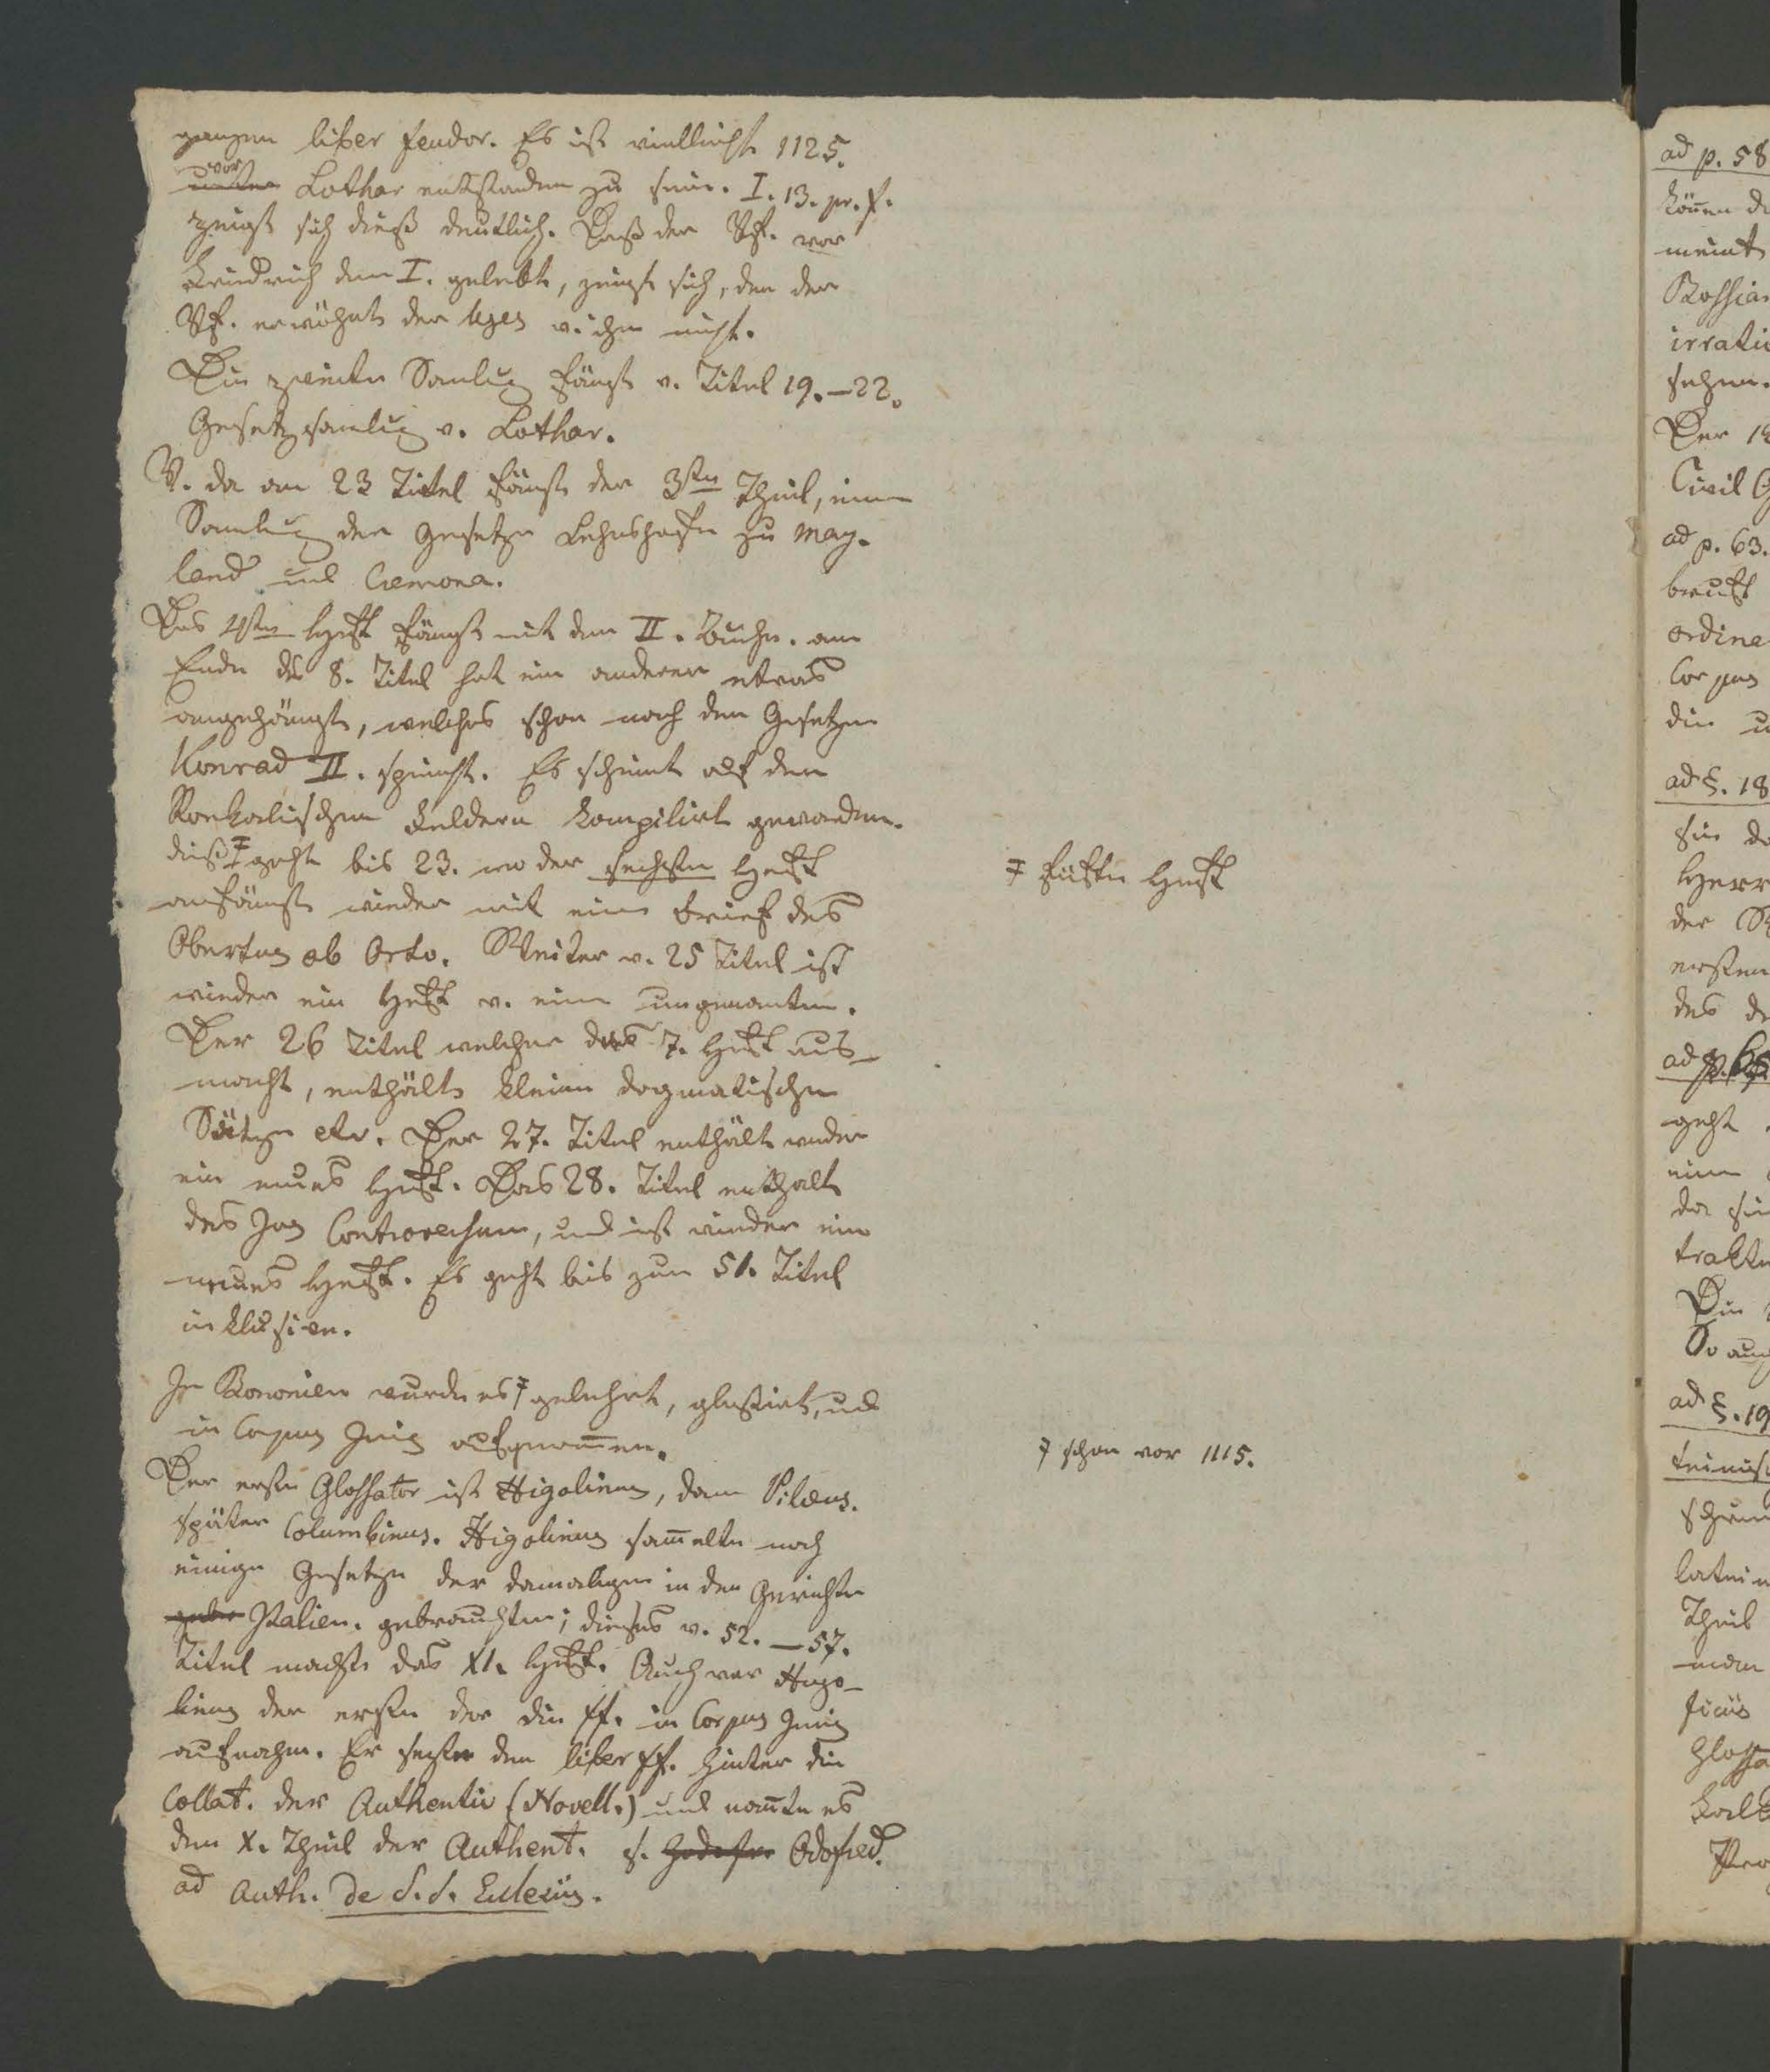 ganzen liber feudor. Es ist vielleicht 1125.
vor
unter Lothar entstanden zu sein. I. 13. pr. f.
zeigt sich dieß deutlich. Daß der Vf. vor
Friedrich dem I. gelebt, zeigt sich, den der
Vf. erwähnt der leges v. ihm nicht.
Die zweite Samlug fängt v. Titel 19.–22.
Gesetzsamlug v. Lothar.
V. da am 23 Titel fängt der 3te Theil, eine
Samlug der Gesetze Lehnshofe zu May-
land und Cremona.
Das 4te Heft fängt mit dem II. Buche. am
Ende des 8. Titel hat ein anderer etwas
angehängt, welches schon nach den Gesetzen
Konrad II. spricht. Es scheint auf den
Ronkalischen Feldern kompilirt geworden.
dieß ‡ geht bis 23. wo der sechste Heft
anfängt wieder mit einem Brief des
Obertus ab Orto. Weiter v. 25 Titel ist
wieder ein Heft v. einem ungenanten.
Der 26 Titel welcher das 7. Heft aus-
macht, enthält kleine dogmatische
Sätze etc. Der 27. Titel enthält wieder
ein neues Heft. Das 28. Titel enthält
das Jus Controversum, und ist wieder ein
neues Heft. Es geht bis zum 51. Titel
inklusive.
In Bononien wurde es ‡ gelehrt, glossirt, und
in Corpus Juris aufgenommen.
Der erste Glossator ist Higolinus, dann Pileus.
später Columbinus. Higolinus sammelte noch
einige Gesetze der damaligen in den Gerichten
Italien. gebrauchten; dieses v. 52.–57.
Titel macht das XI. Heft. Auch war Hugo-
linus der erste der die ff. in Corpus Juris
aufnahm. Er setzte den liber ff. hinter die
Collat. der Authentic (Novell.) und nannte es
den X. Theil der Authent. s. Odofred.
ad Auth. de S. S. Ecclesiis.
‡ fünfte Heft
‡ schon vor 1115.
ad p. 58
können
meint
irrati
sehen.
Der
Civil G
ad p. 63.
ordina
Corpus
die
ad §. 18
Herr
der
ersten
des
ad p. 65
geht
eine
da
trakte
Die
So auch
ad §. 19
latein
Theil
man
ficiis
Glossa